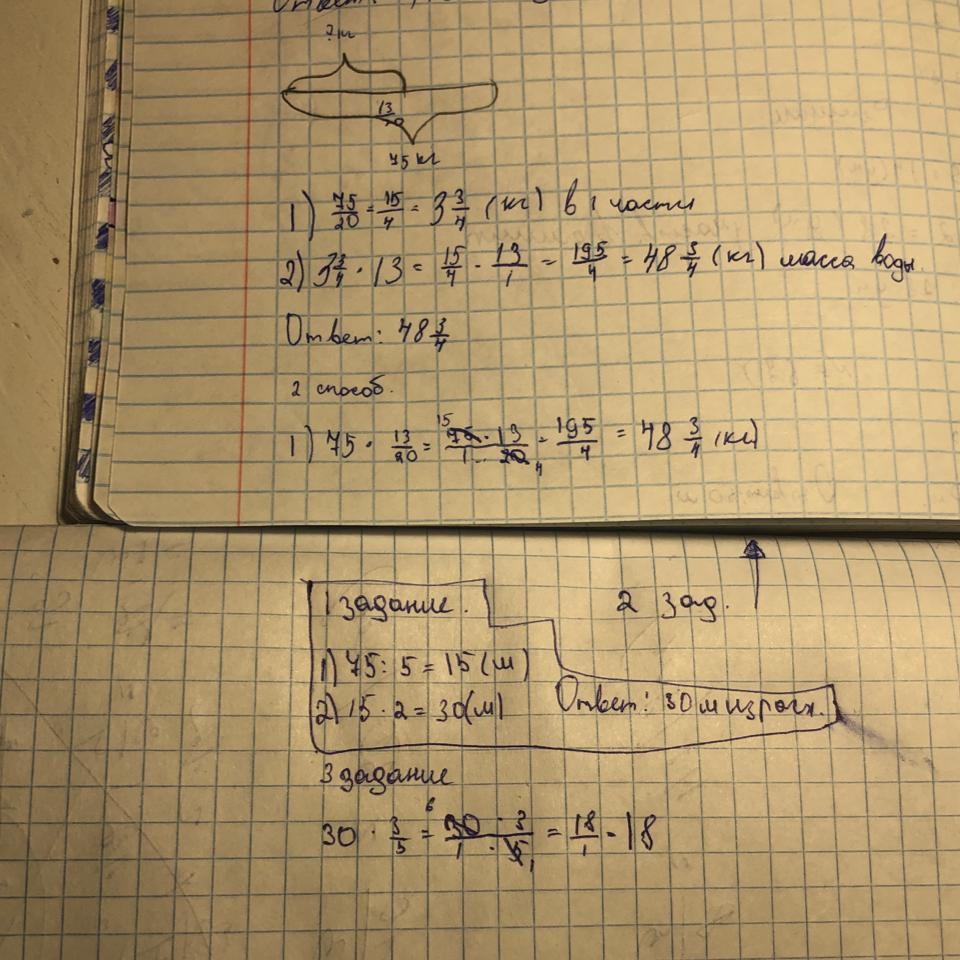 Ответ:
? м
13/20
75 кг
1) 75/20 = 15/4 = 3 3/4 (кг) в 1 части
2) 3 3/4 · 13 = 15/4 · 13/1 = 195/4 = 48 3/4 (кг) масса воды.
Ответ: 48 3/4
2 способ.
1) 75 · 13/20 = 75 · 13/1 · 20 = 195/4 = 48 3/4 (кг)
15
4
1 задание.
2 зад.
1) 75 : 5 = 15 (м)
2) 15 · 2 = 30 (м)
Ответ: 30 м израсх.
3 задание
30 · 3/5 = 30 · 3/1 · 5 = 18/1 = 18
6
1